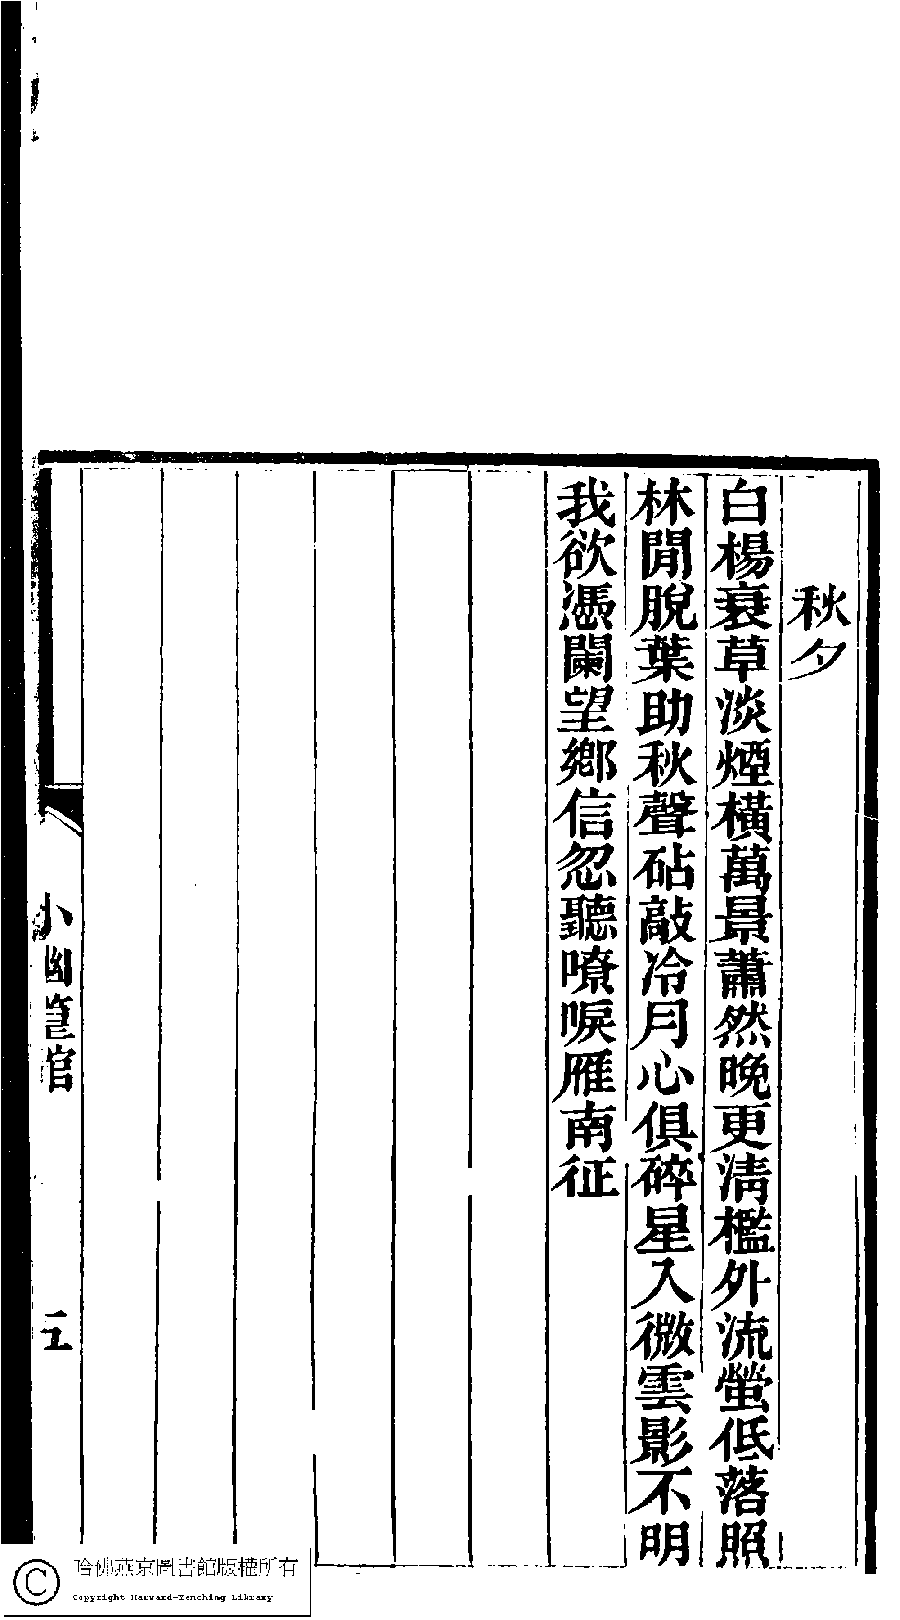 秋夕
白楊衰草淡煙橫萬景蕭然晚更淸檻外流螢低落照
林閒脫葉助秋聲砧敲冷月心俱碎星入微雲影不明
我欲憑闌望鄉信忽聽嘹唳雁南征
小幽篁館
哈佛燕京圖書館版權所有
Copyright Harvard-Yenching Library